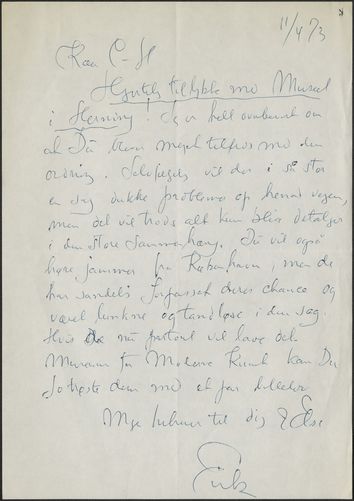 11/4 73
Kære C-H
Hjertelig tillykke med Museet
i Herning! Jeg er helt overbevist om
at Du bliver meget tilfreds med den
ordning. Selvfølgelig vil der i så stor
en sag dukke problemer op hen ad vejen,
men det vil trods alt kun blive detaljer
i den store sammenhæng. Du vil også
høre jammer fra København, men de
har sandelig forpasset deres chance og
været lunkne og tandløse i den sag.
Hvis de nu partout vil lave et
Museum for Moderne Kunst kan Du
jo trøste dem med et par billeder
Mange hilsner til dig & Else
Erik